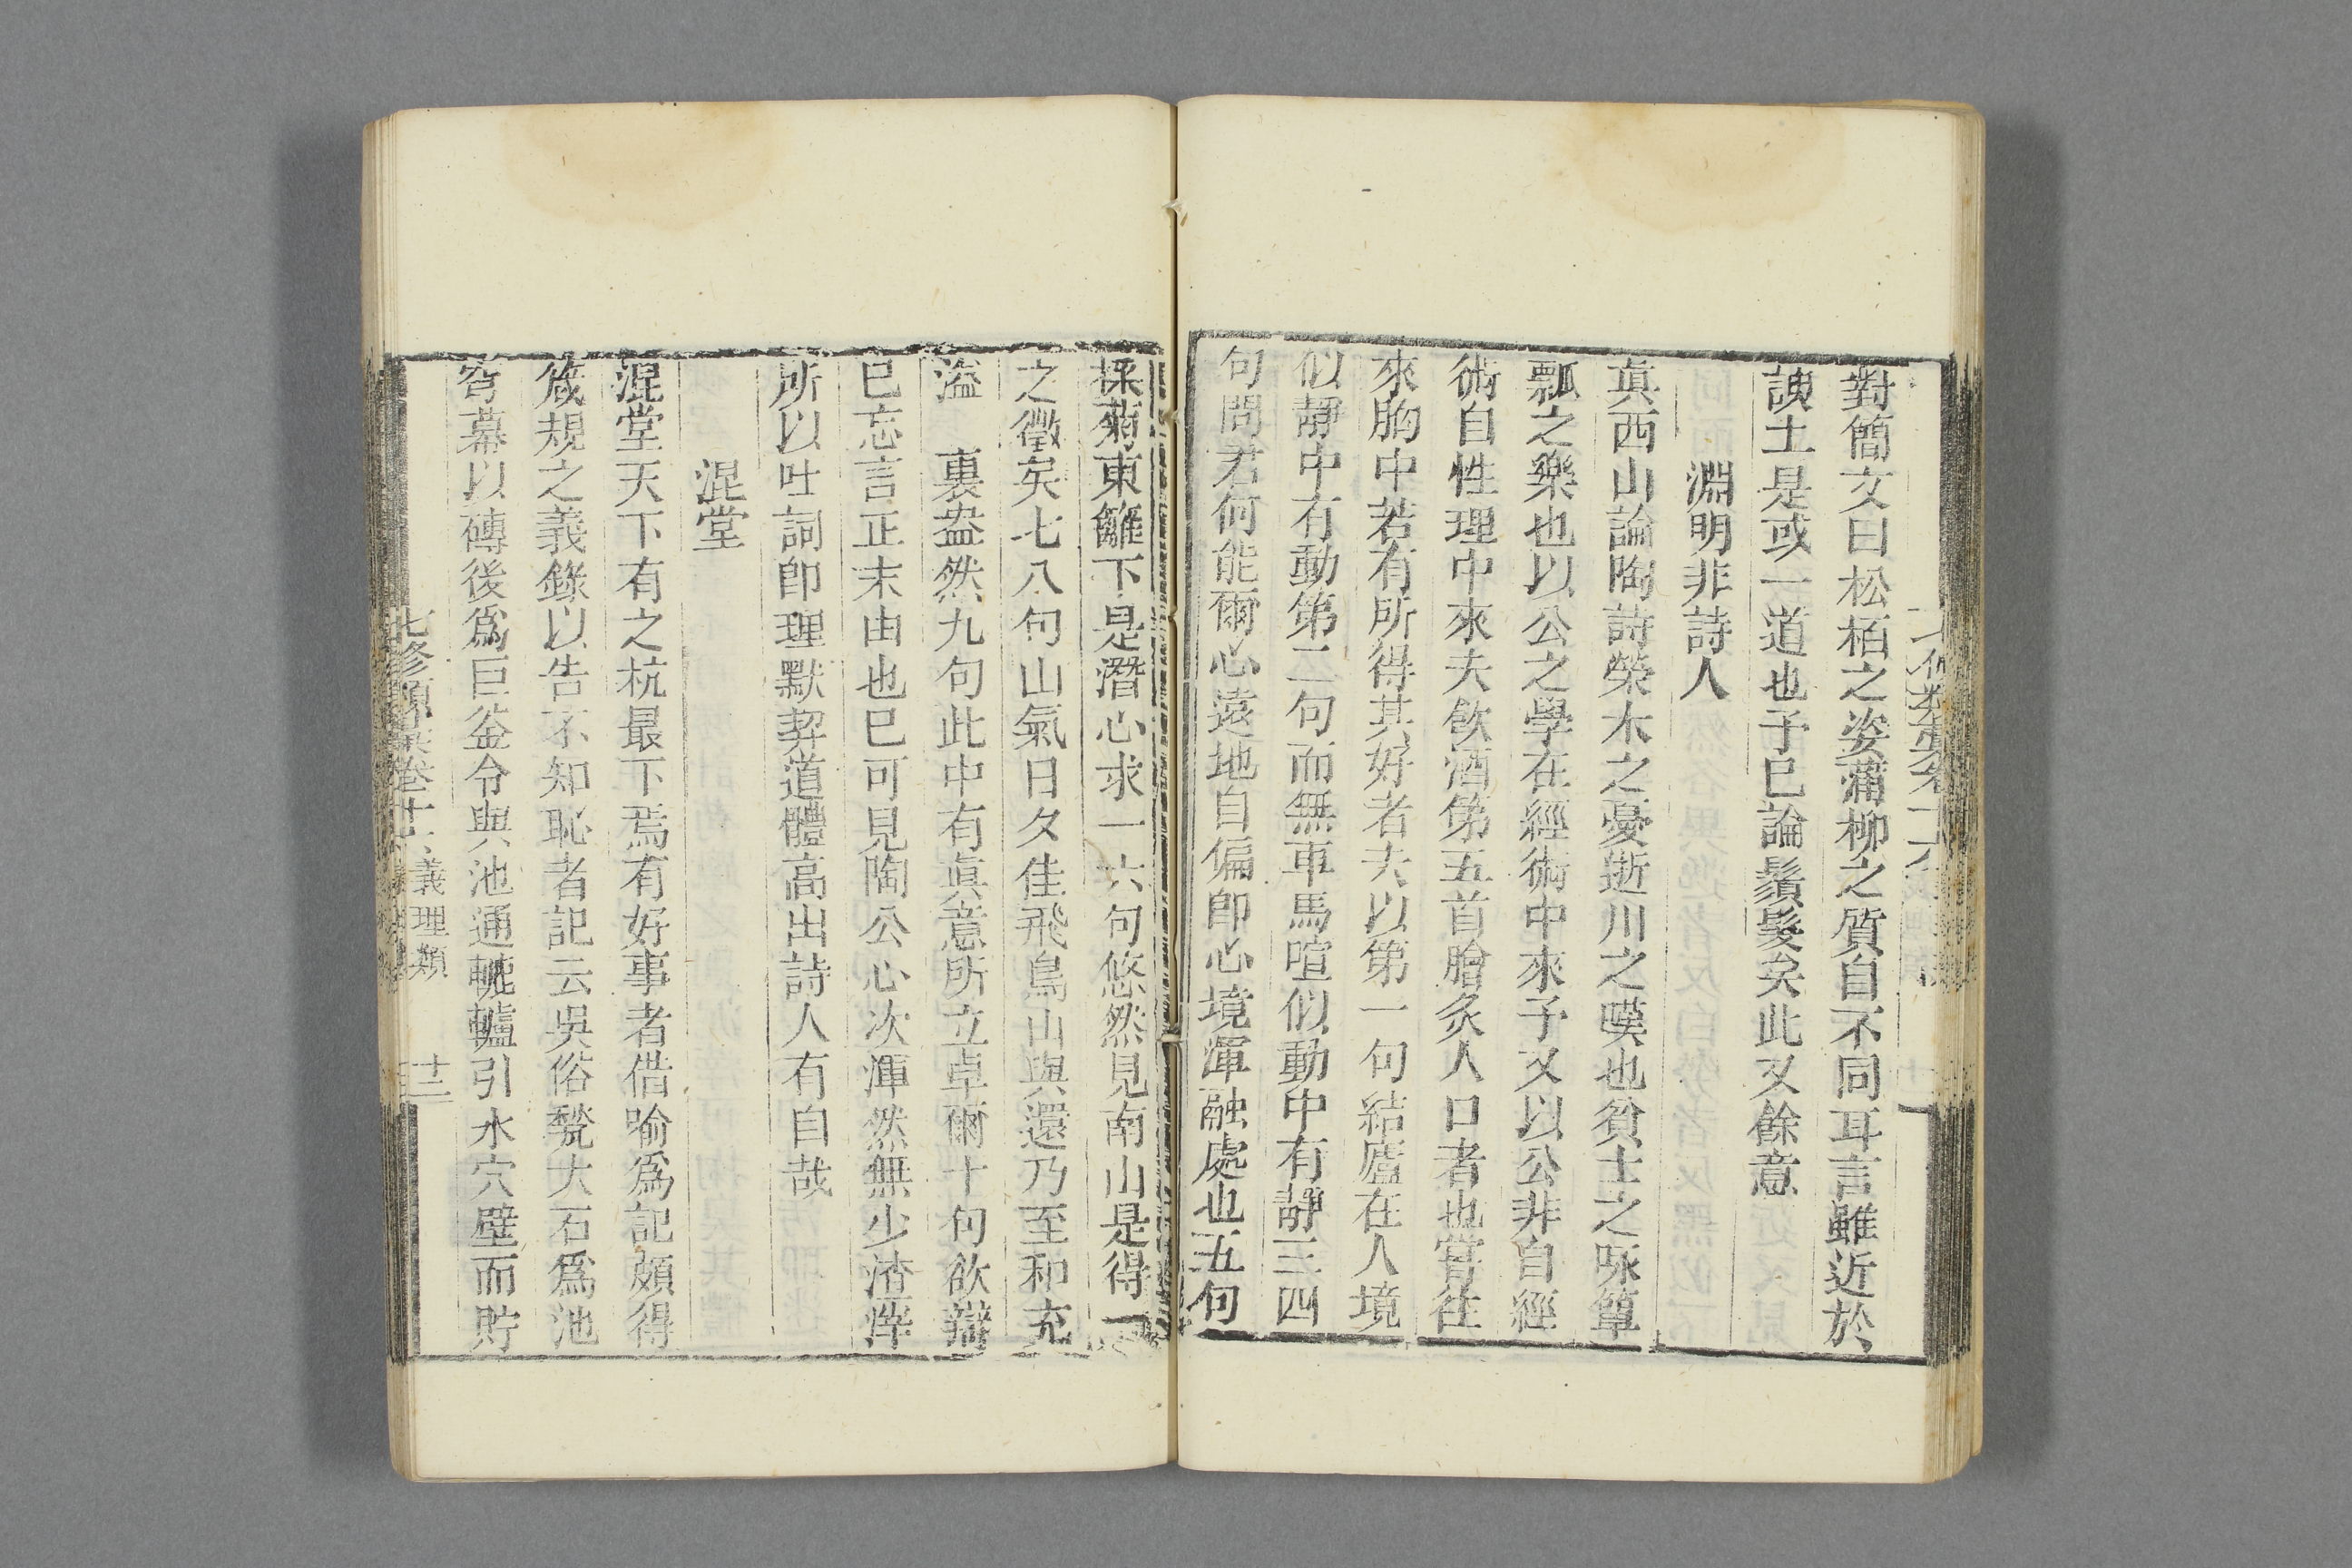 對簡文曰松栢之姿蒲柳之質自不同耳言雖近於
諛土是或一道也予巳論鬚髮矣此又餘意
淵明非詩人
眞西山論陶詩榮木之憂逝川之嘆也貧士之咏簞
瓢之樂也以公之學在經術中來予又以公非自經
術自性理中來夫飲酒第五首膾炙人口者也嘗往
來胸中若有所得其好者夫以第一句結廬在人境
似靜中有動第二句而無車馬喧似動中有靜三四
句問君何能爾心遠地自偏卽心境渾融處也五句
採菊東籬下是潛心求一六句悠然見南山是得一
之徵矣七八句山氣日夕佳飛鳥山與還乃至和充
溢 裏盎然九句此中有眞意所立卓爾十句欲辯
巳忘言正末由也巳可見陶公心次渾然無少渣滓
所以吐詞卽理默契道體高出詩人有自哉
混堂
混堂天下有之杭最下焉有好事者借喻爲記頗得
箴規之義錄以告不知恥者記云吳俗甃大石爲池
穹幕以磚後爲巨釜令與池通轆轤引水穴壁而貯
七修類藁卷十六 義理類 十二